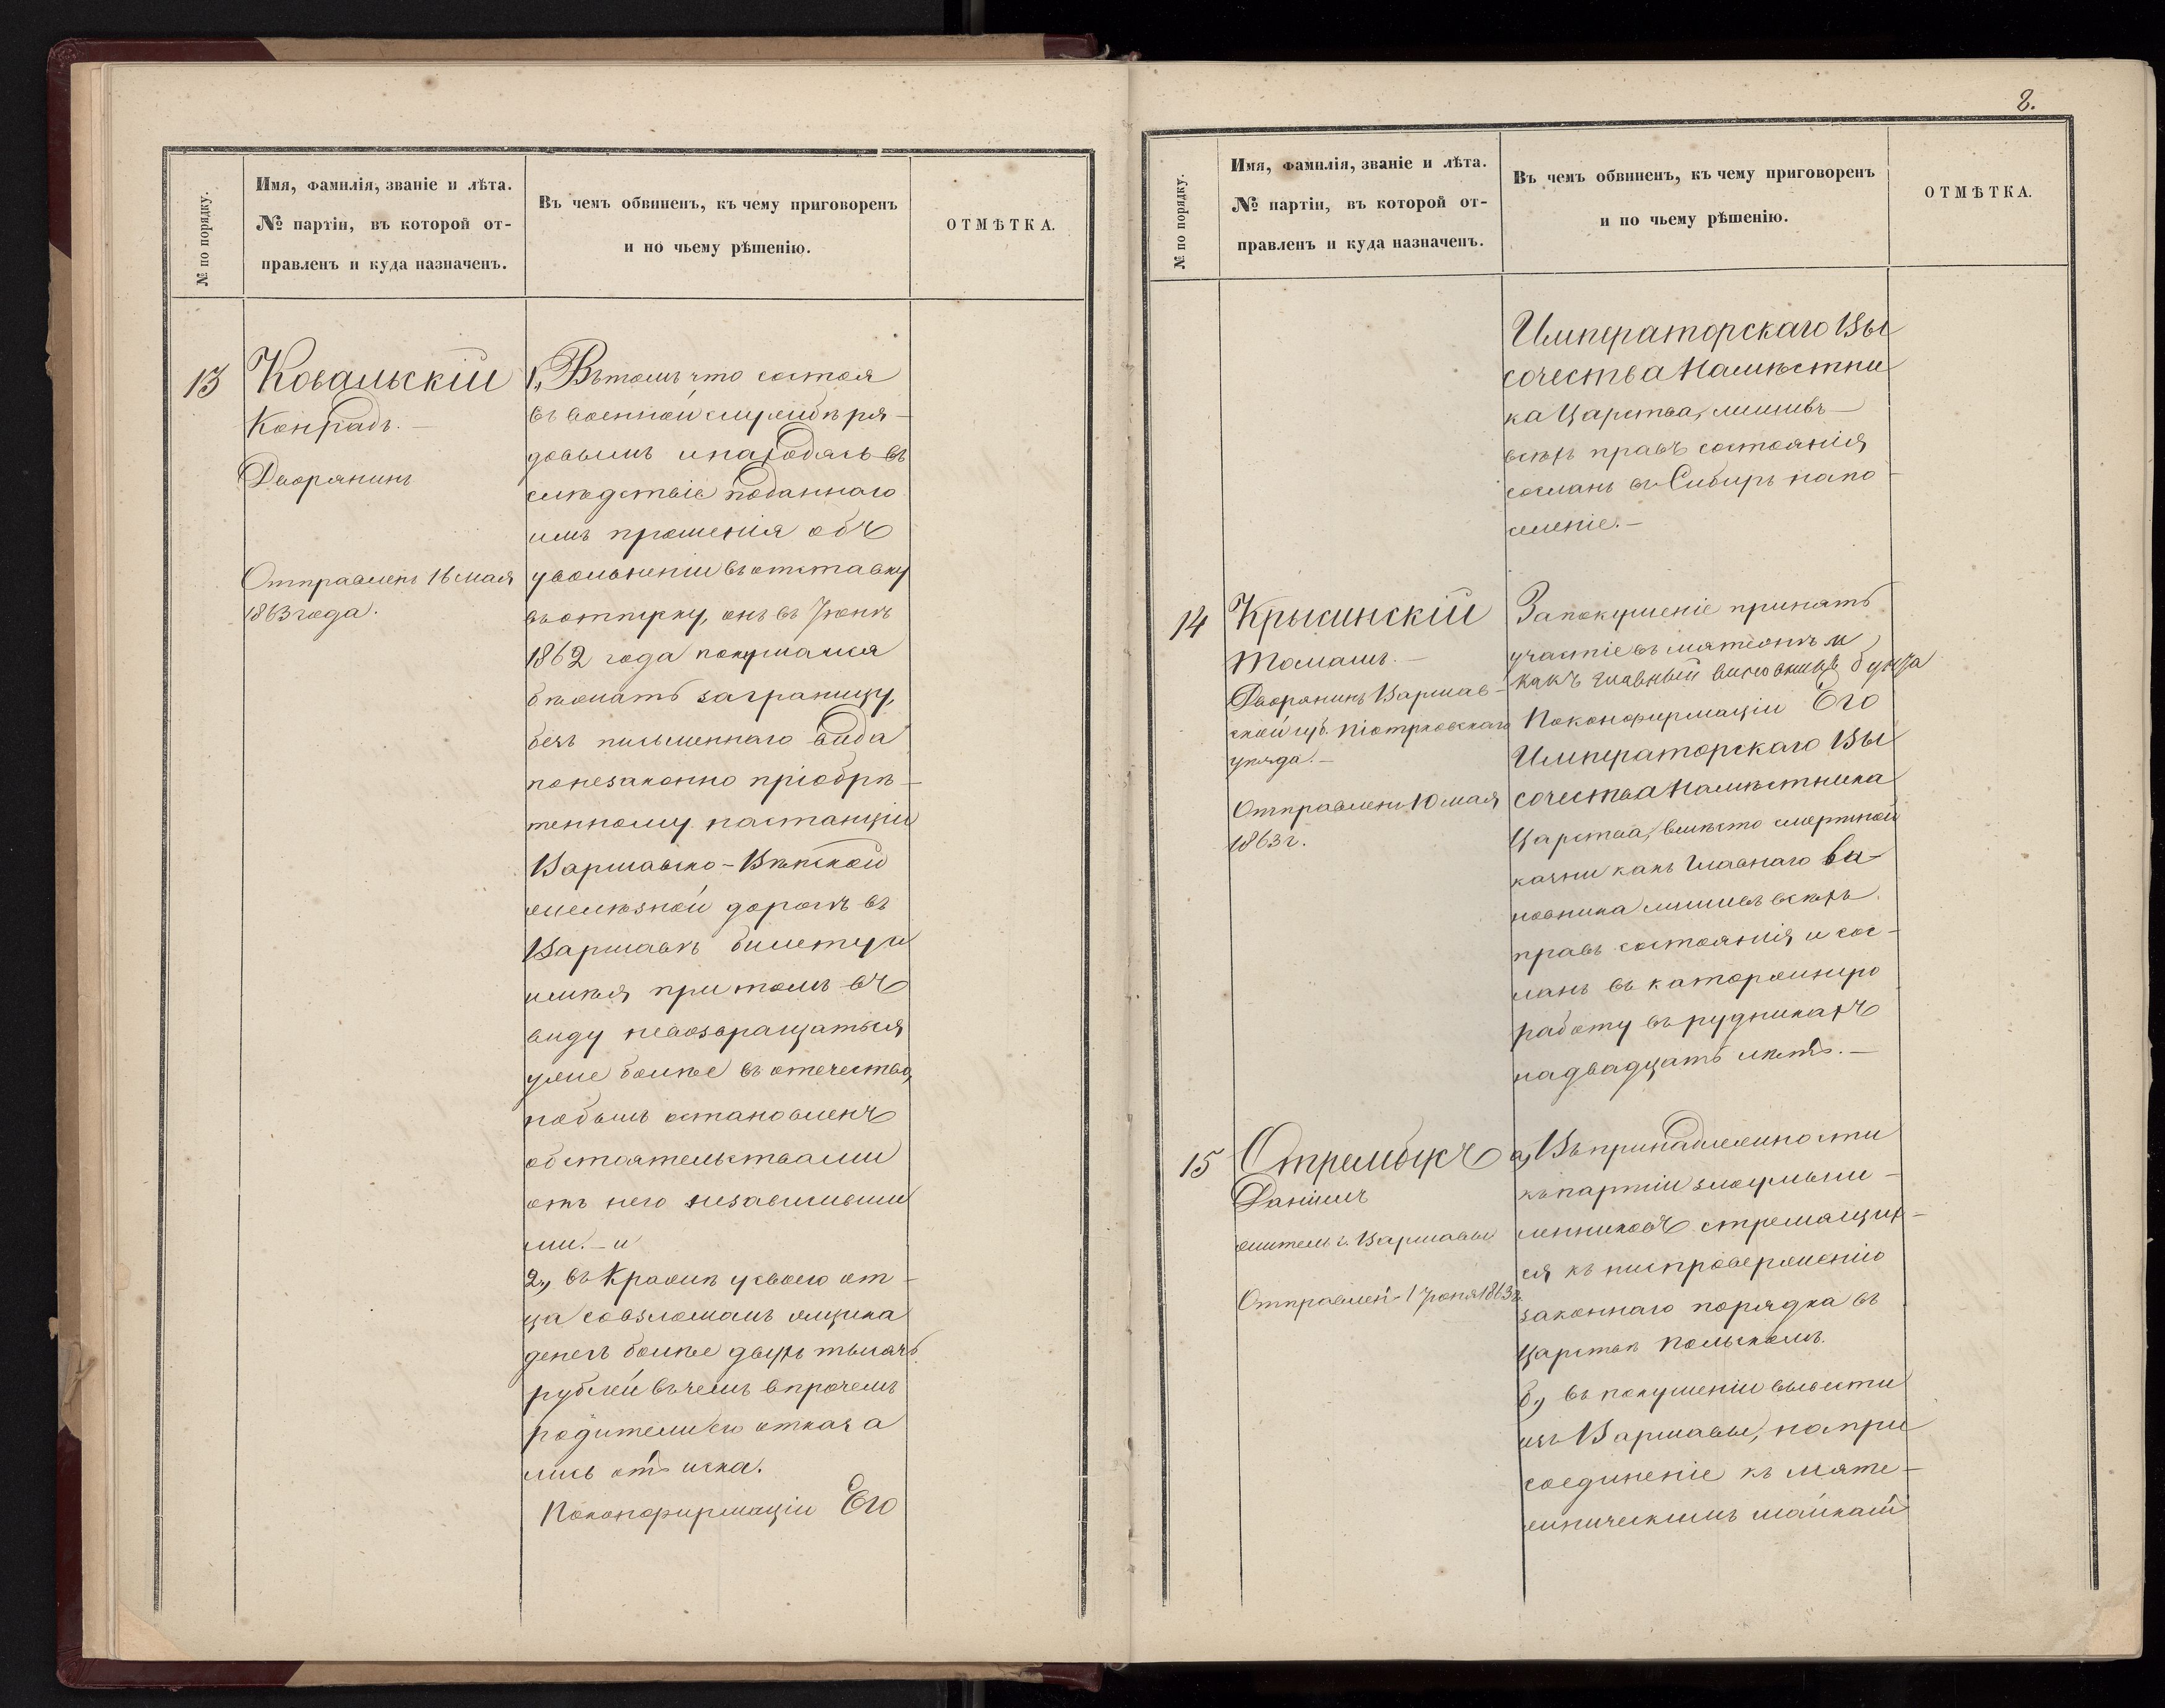 № по порядку.
Имя, фамилія, званіе и лѣта.
№ партіи, въ которой от-
правленъ и куда назначенъ.
Въ чемъ обвиненъ, къ чему приговоренъ
и по чьему рѣшенію.
ОТМѢТКА.
13
Ковальскій
Конрадъ.—
Дворянинъ
Отправленъ 16 мая
1863 года.
1., Въ томъ что состоя
въ военной службѣ ря-
довымъ и находясь въ
слѣдствіе поданнаго
имъ прошенія объ
увольненіи въ отставку
въ отпуску, онъ въ Іюнѣ
1862 года покушался
бѣжать за границу,
безъ письменнаго вида
по незаконно пріобрѣ-
тенному на станціи
Варшавско-Вѣнской
желѣзной дороги въ
Варшавѣ билету и
имѣя при томъ въ
виду невозвращаться
уже болѣе въ отечество,
но былъ остановленъ
обстоятельствами
отъ него независивши
ми.— и
2., въ кражѣ у своего от-
ца со взломомъ ящика
денегъ болѣе двухъ тысячъ
рублей въ чемъ впрочемъ
родители его отказа
лись отъ иска.
По конфирмаціи Его
8.
№ по порядку.
Имя, фамилія, званіе и лѣта.
№ партіи, въ которой от-
правленъ и куда назначенъ.
Въ чемъ обвиненъ, къ чему приговоренъ
и по чьему рѣшенію.
ОТМѢТКА.
Императорскаго Вы
сочества Намѣстни
ка Царства, лишивъ—
всѣхъ правъ состоянія
сосланъ въ Сибирь на по-
селеніе.—
14
Крысинскій
Томашъ.—
Дворянинъ Варшав-
ской губ. Піотрковскаго
уѣзда.—
Отправленъ 10 мая
1863 г.
За покушеніе принять
участіе въ мятежѣ и
какъ главный виновникъ бунта
По конфирмаціи Его
Императорскаго Вы
сочества Намѣстника
Царства, вмѣсто смертной
казни какъ главнаго ви-
новника лишивъ всѣхъ
правъ состоянія и сос-
ланъ въ каторжную
работу въ рудникахъ
на двадцать лѣтъ.—
15
Стрембукъ
Даніилъ
житель г. Варшавы
Отправлен- 1 Іюня 1863 г.
а, Въ принадлежности
къ партіи злоумыш-
ленниковъ стремящих-
ся къ ниспроверженію
законнаго порядка въ
Царствѣ Польскомъ.
б., въ покушеніи вывести
изъ Варшавы, на при
соединеніе къ мяте-
жническимъ шайкамъ